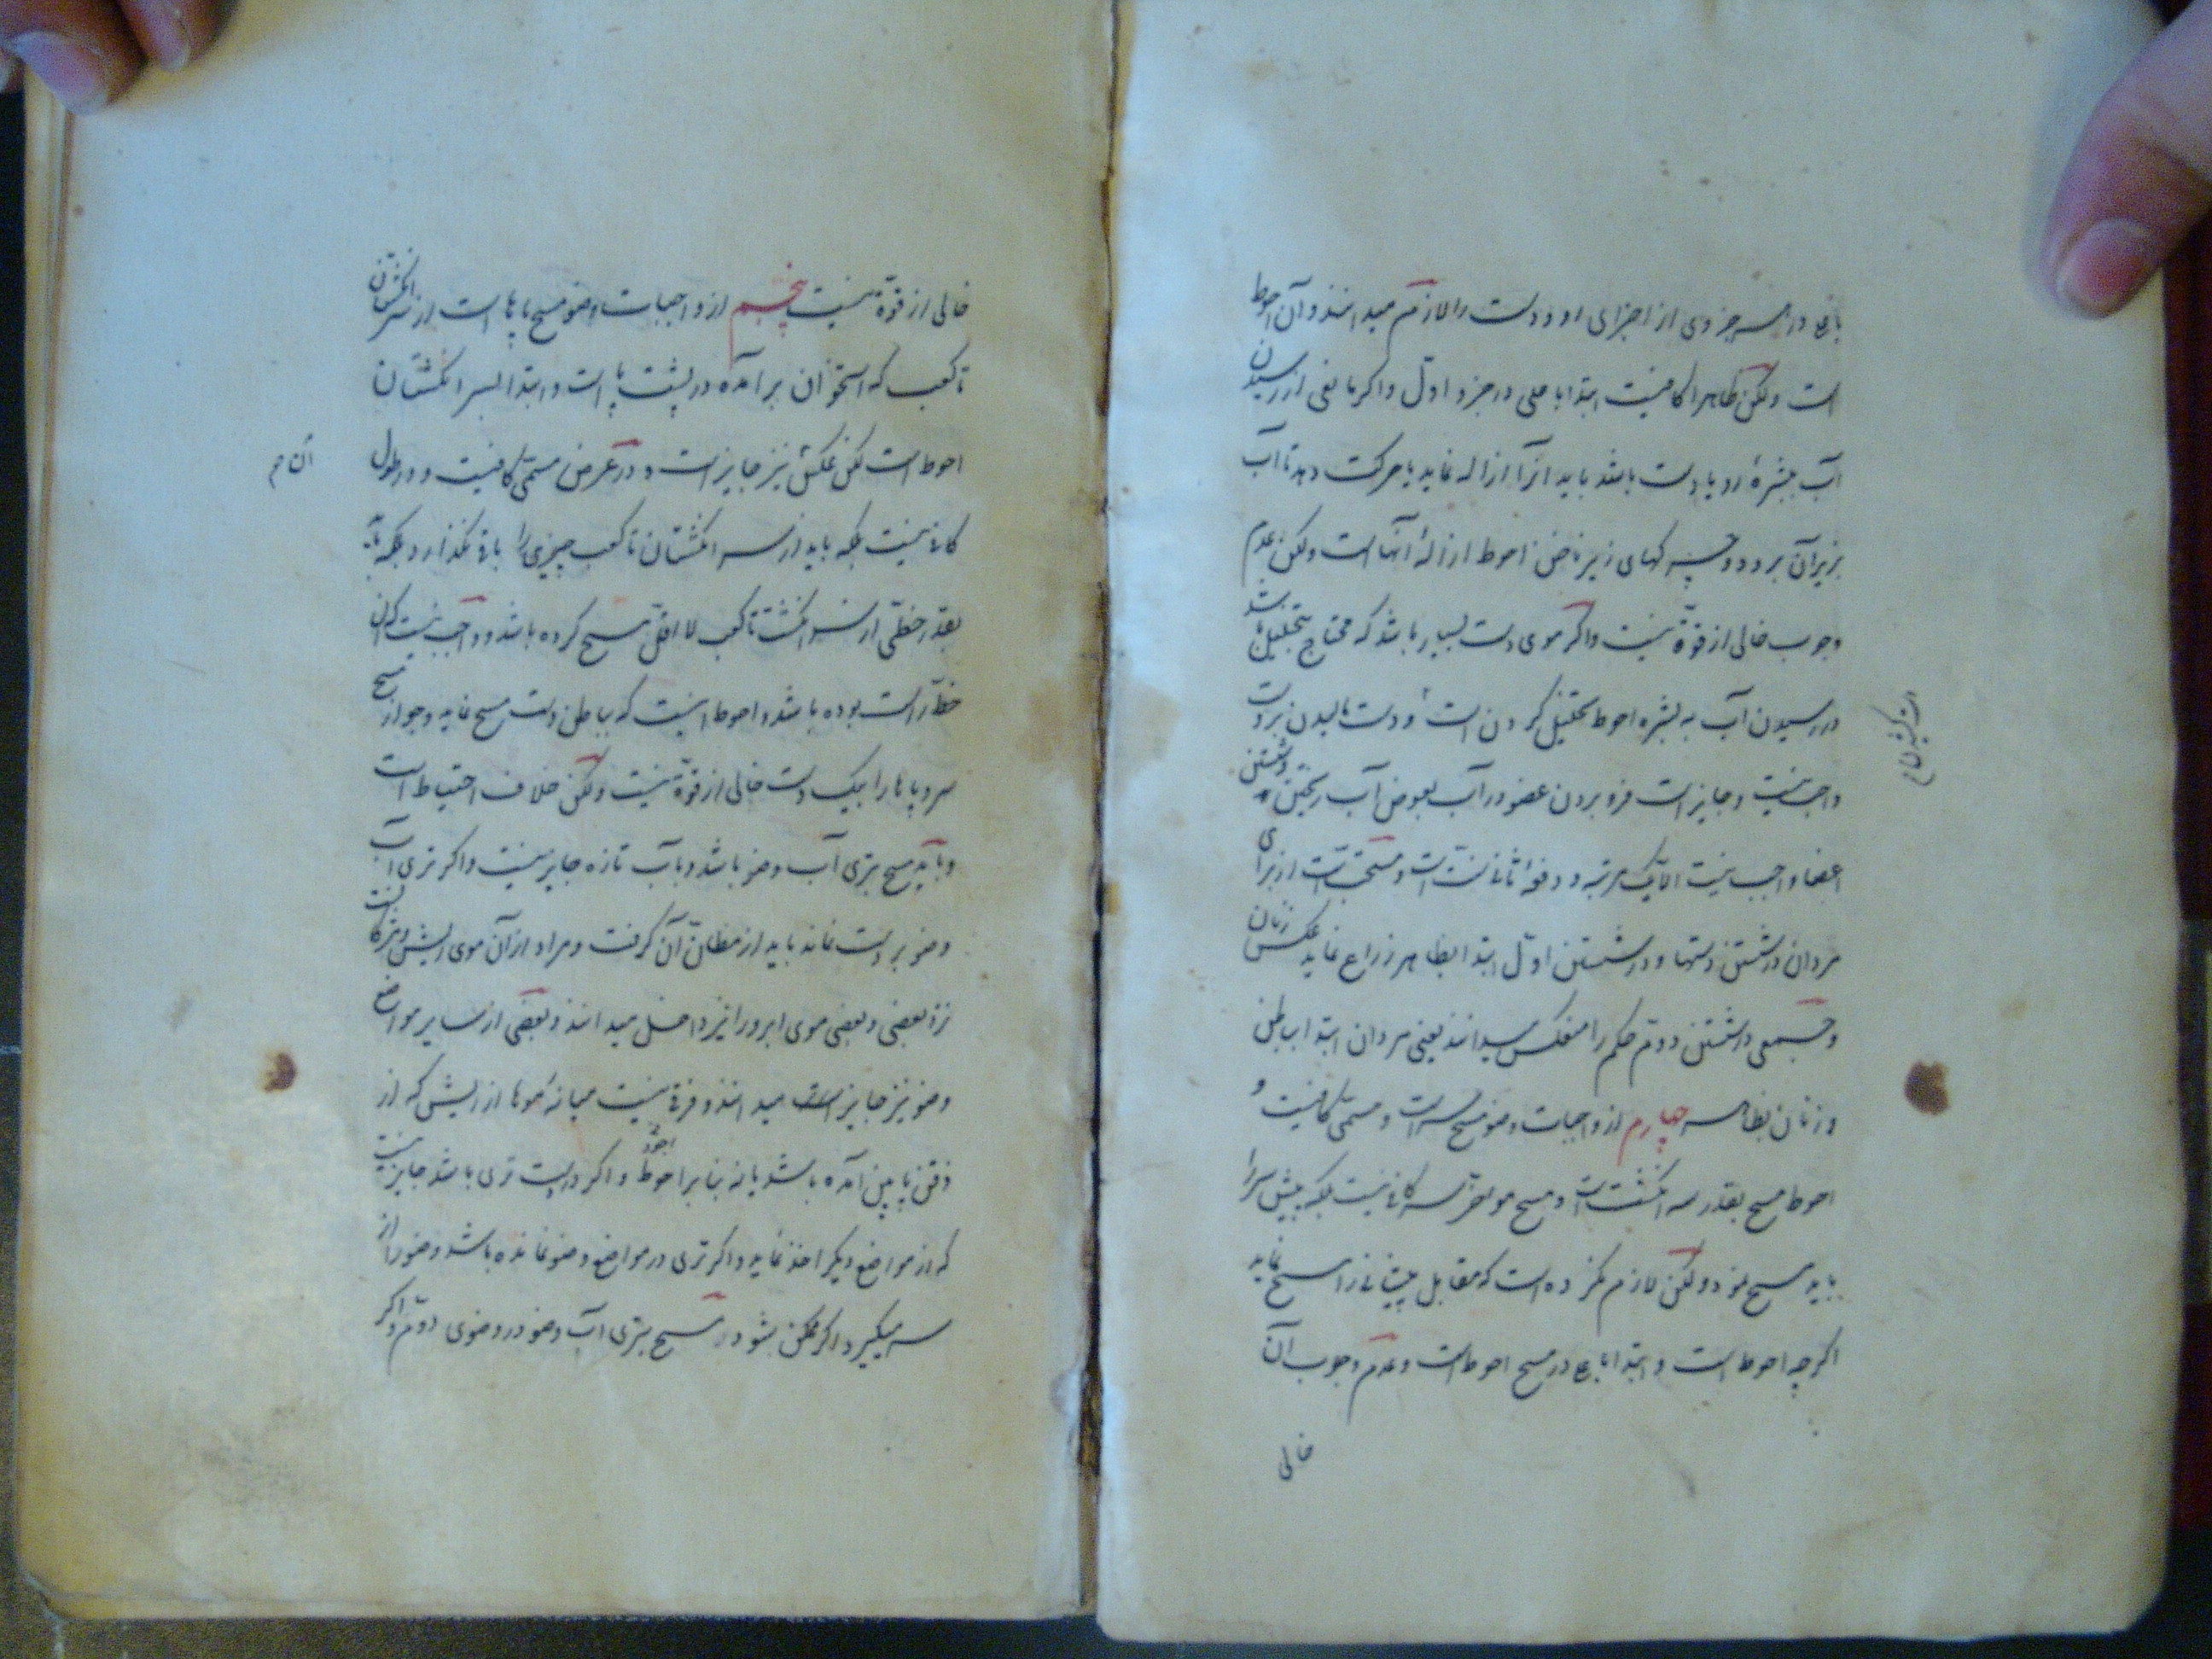 باعلا در هر جزوی از اجزای رو و دست را لازم میدانند و آن احوط
است ولکن ظاهرا کافیست ابتدا باعلی در جزو اوّل و اکر مانعی از رسیدن
آب ببشرهٔ رو یا دست باشد باید آنرا ازاله نماید یا حرکت دهد تا آب
بزیر آن برود و چرکهای زیر ناخن احوط ازالهٔ آنها است ولکن عدم
وجوب خالی از قوّة نیست و اکر موی دست بسیار باشد که محتاج بتخلیل باشد
در رسیدن آب به بشره احوط تخلیل کردن است و دست مالیدن بر دست
واجب نیست و جایز است فرو بردن عضو در آب بعوض آب ریختن و شستن
اعضا واجب نیست الّا یک مرتبه و دفعهٔ ثانیه سنّت است و مستحبّ است از برای
مردان در شستن دستها و در شستن اوّل ابتدا بظاهر ذراع نماید عکس زنان
و جمعی در شستن دوّم حکم را منعکس میدانند یعنی مردان ابتدا بباطن
و زنان بظاهر چهارم از واجبات وضو مسح سر است و مسمّی کافیست و
احوط مسح بقدر سه انکشت است و مسح موخّر سر کافی نیست بلکه پیش سر را
باید مسح نمود ولکن لازم نکرده است که مقابل پیشانی را مسح نماید
اکرچه احوط است و ابتدا باعلا در مسح احوط است و عدم وجوب آن
خالی
خالی از قوّة نیست پنجم از واجبات وضو مسح پاها است از سر انکشتان
تا کعب که استخوان برآمده در پشت پا است و ابتدا بسر انکشتان
احوط است لکن عکس نیز جایز است و در عرض مسمّی کافیست و در طول
آن م
کافی نیست بلکه باید از سر انکشتان تا کعب چیزی را باقی نکذارد بلکه باید
بقدر خطّی از سر انکشت تا کعب لا اقلّ مسح کرده باشد و واجب نیست که آن
خط راست بوده باشد و احوط اینست که بباطن دست مسح نماید و جواز مسح
سر و پاها را بیک دست خالی از قوّة نیست ولکن خلاف احتیاط است
و باید مسح بتری آب وضو باشد و بآب تازه جایز نیست و اکر تری آب
وضو بر دست نماند باید از مظانّ آن کرفت و مراد از آن موی ریش و مژکانست
نزد بعضی و بعضی موی ابرو را نیز داخل میدانند و بعضی از سایر مواضع
وضو نیز جایز است میدانند و فرقی نیست میانهٔ موها از ریش که از
ذقن پایین آمده باشد یا نه بنا بر احوط و اکر در دست تری باشد جایز نیست
که از مواضع دیکر اخذ نماید و اکر تری در مواضع وضو نمانده باشد وضو را از
سر میکیرد و اکر ممکن نشود مسح بتری آب وضو در وضوی دوّم و اکر